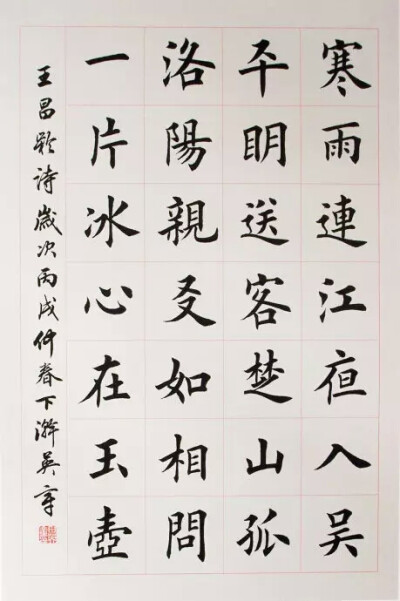 寒雨連江夜入吴
平明送客楚山孤
洛陽親友如相問
一片冰心在玉壺
王昌齡詩歲次丙戌仲春下澣